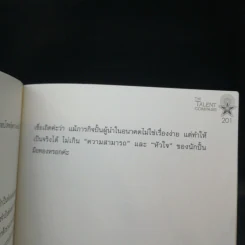 THE
TALENT
201
เชื่อเถิดค่ะว่า แม้ภารกิจปั้นผู้นำในอนาคตไม่ใช่เรื่องง่าย แต่ทำให้
เป็นจริงได้ ไม่เกิน "ความสามารถ" และ "หัวใจ" ของนักปั้น
มือทองหรอกค่ะ